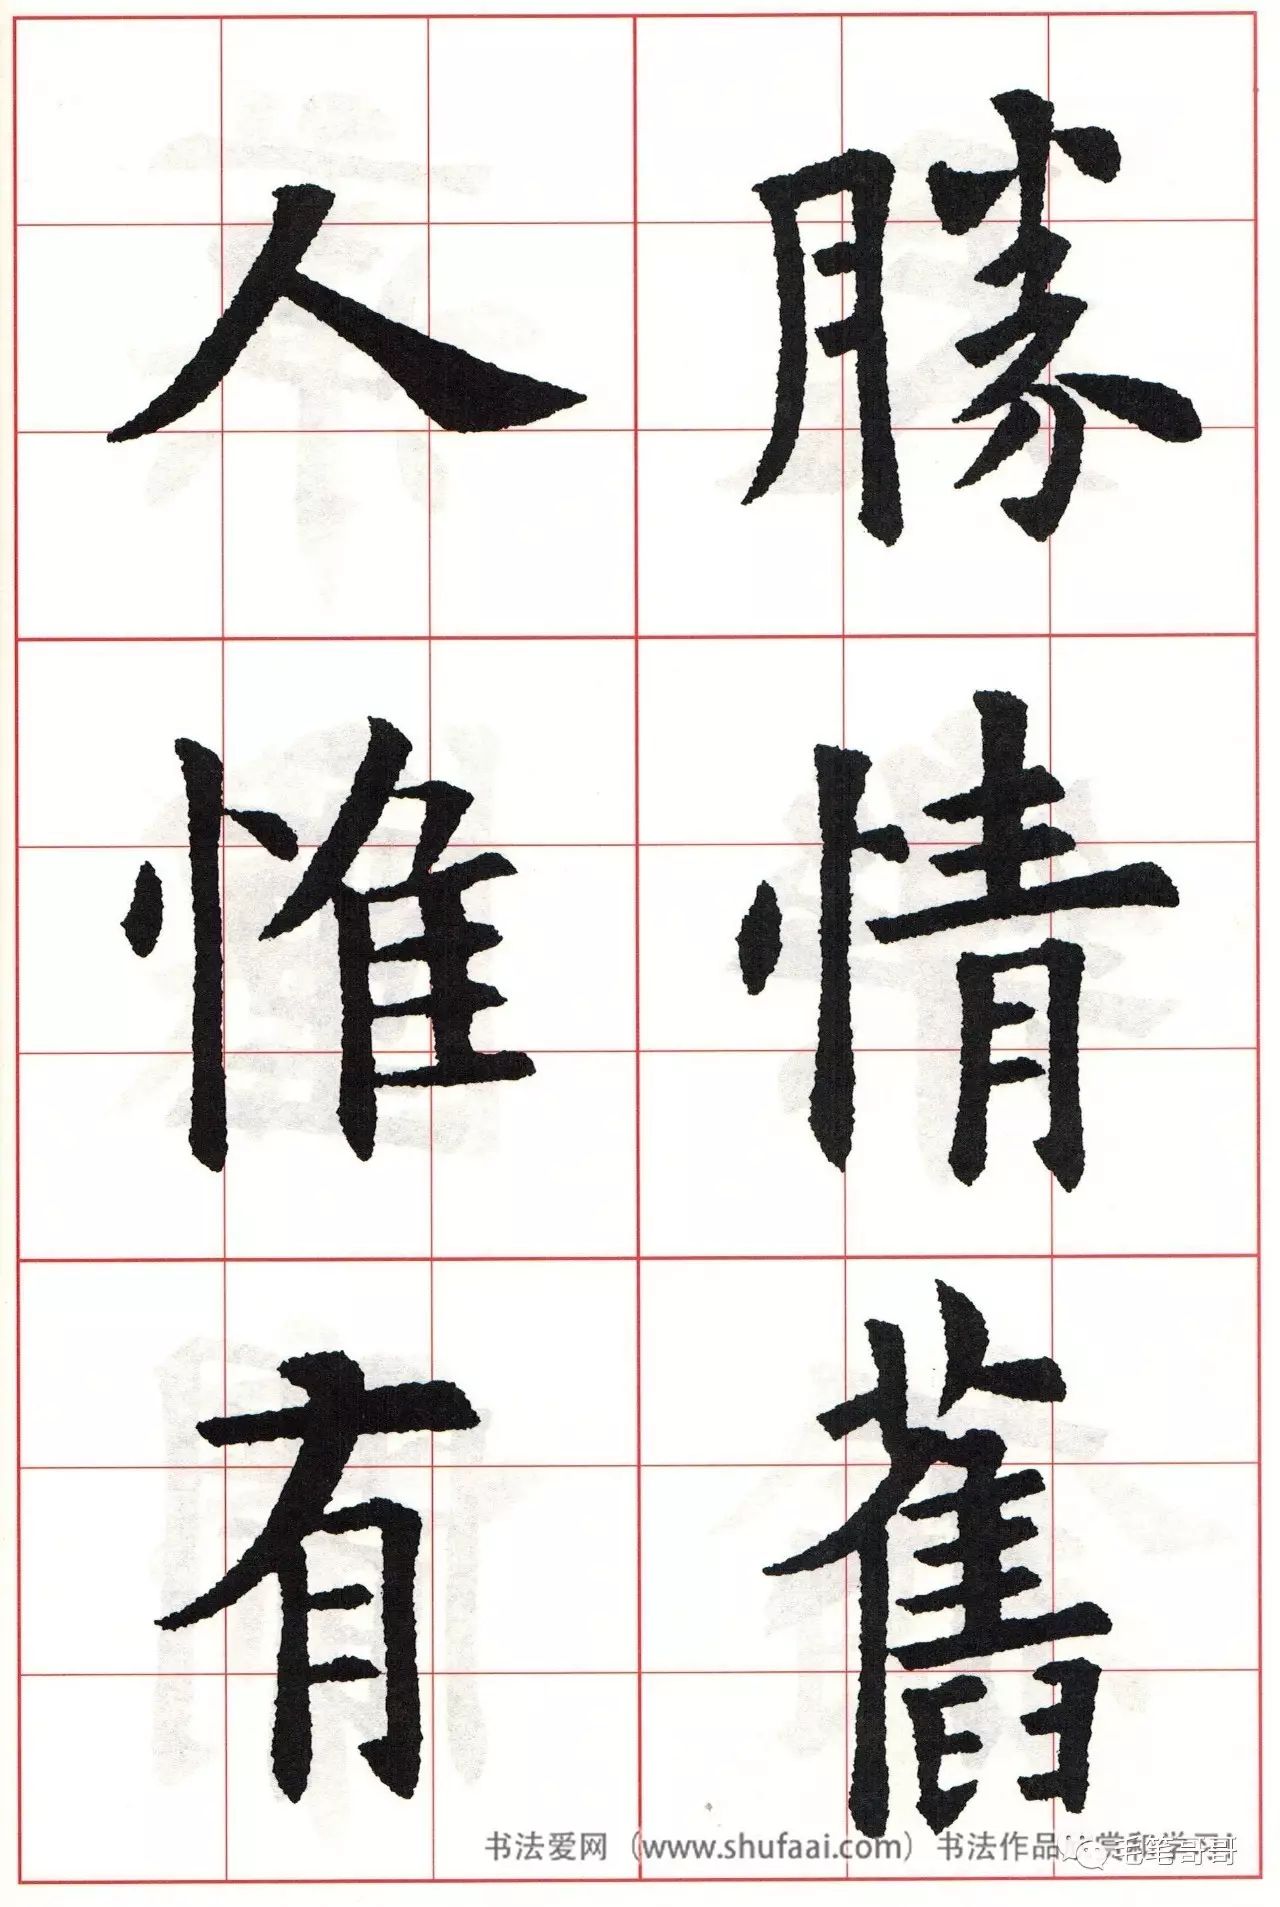 勝情舊
人惟有
书法爱网（www.shufaai.com）书法作品 赏和学习
毛笔哥哥